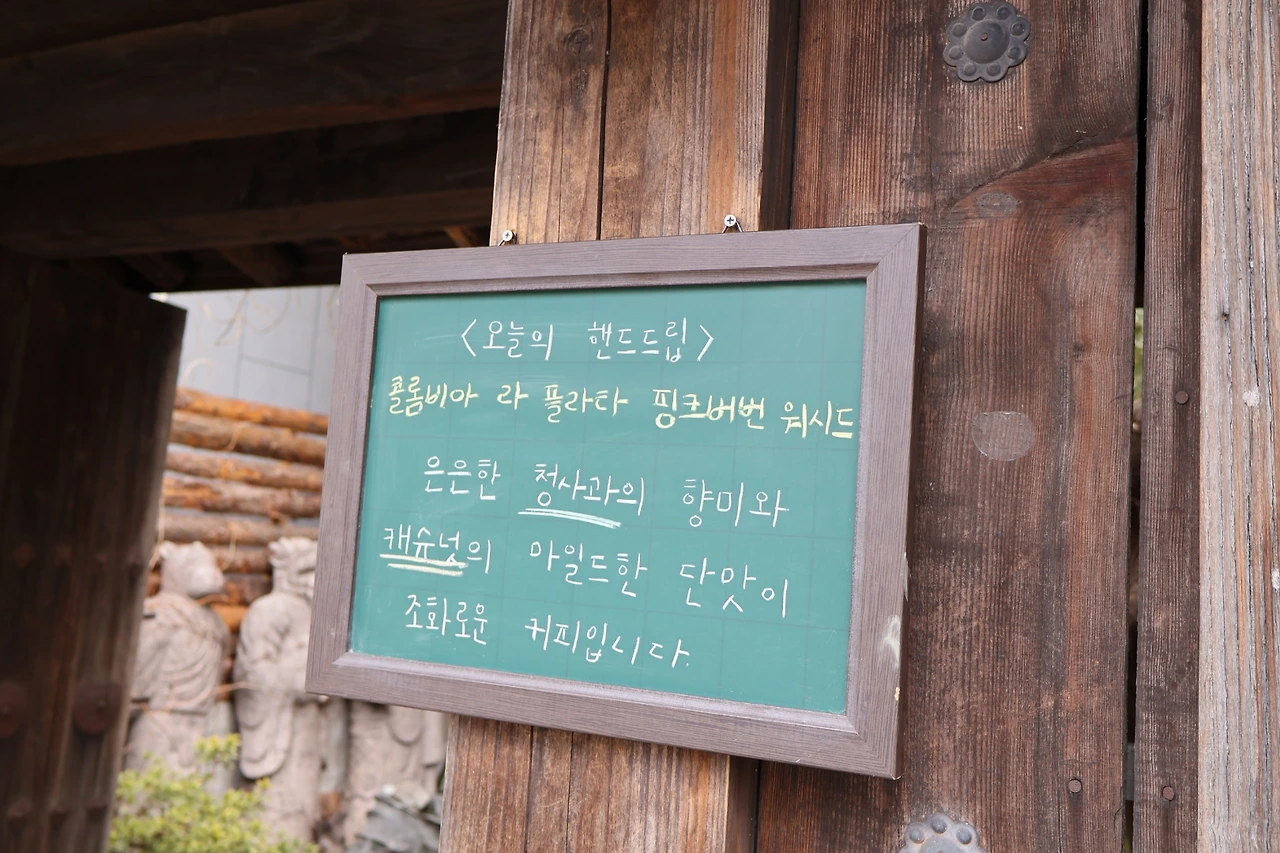 <오늘의 핸드드립>
콜롬비아 라 플라타 핑크버번 워시드
은은한 청사과의 향미와
캐슈넛의 마일드한 단맛이
조화로운 커피입니다.